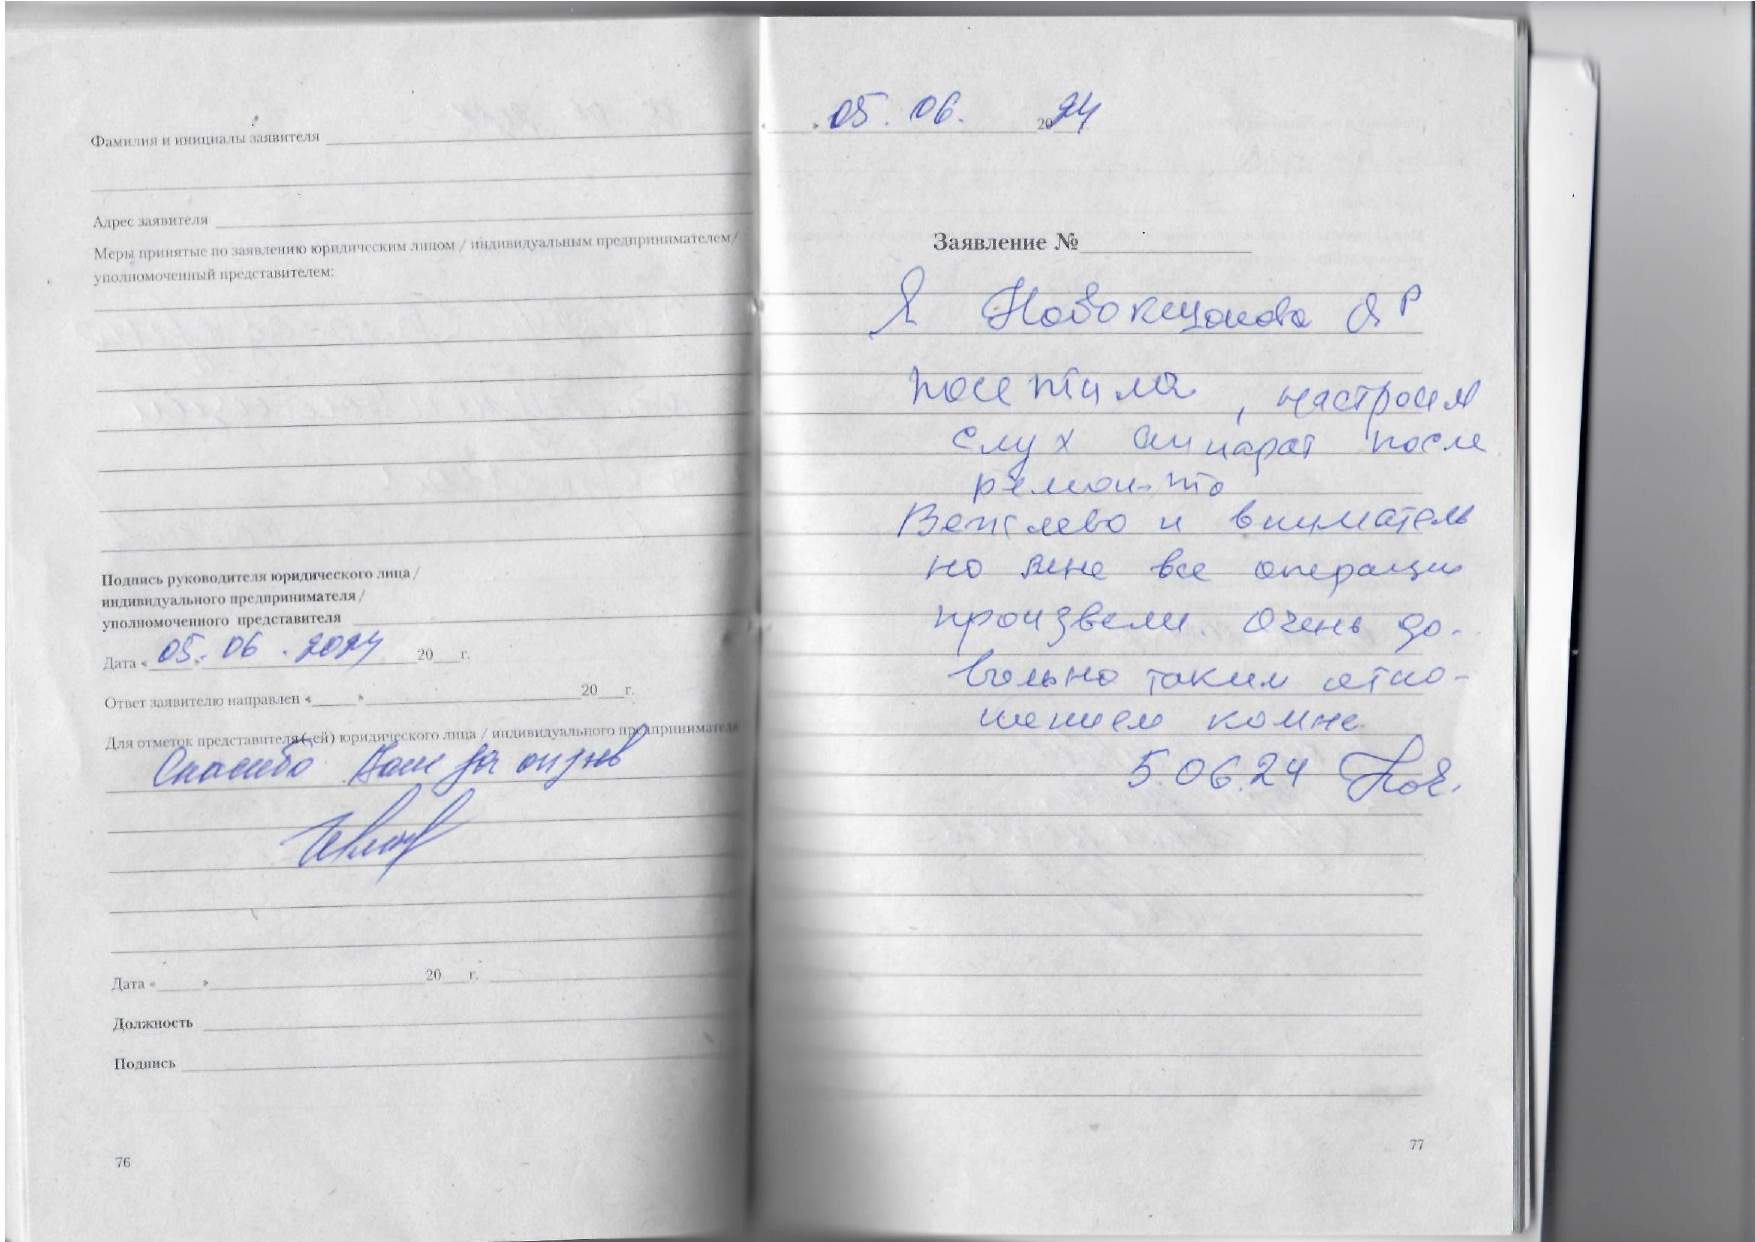 Фамилия и инициалы заявителя
Адрес заявителя
Меры принятые по заявлению юридическим лицом / индивидуальным предпринимателем/
уполномоченный представителем:
Подпись руководителя юридического лица /
индивидуального предпринимателя /
уполномоченного представителя
Дата « 05. 06. 2024 20 г.
Ответ заявителю направлен « » 20 г.
Для отметок представителя(-ей) юридического лица / индивидуального предпринимателя
Спасибо Вам за отзыв
Дата « » 20 г.
Должность
Подпись
76
» 05. 06. 2024
Заявление №
Я
посетила, настроил
слух аппарат после
ремонта
Вежлево и вниматель
но мне все операции
произвели. Очень до-
вольна таким отно-
шением ко мне
5.06.24
77